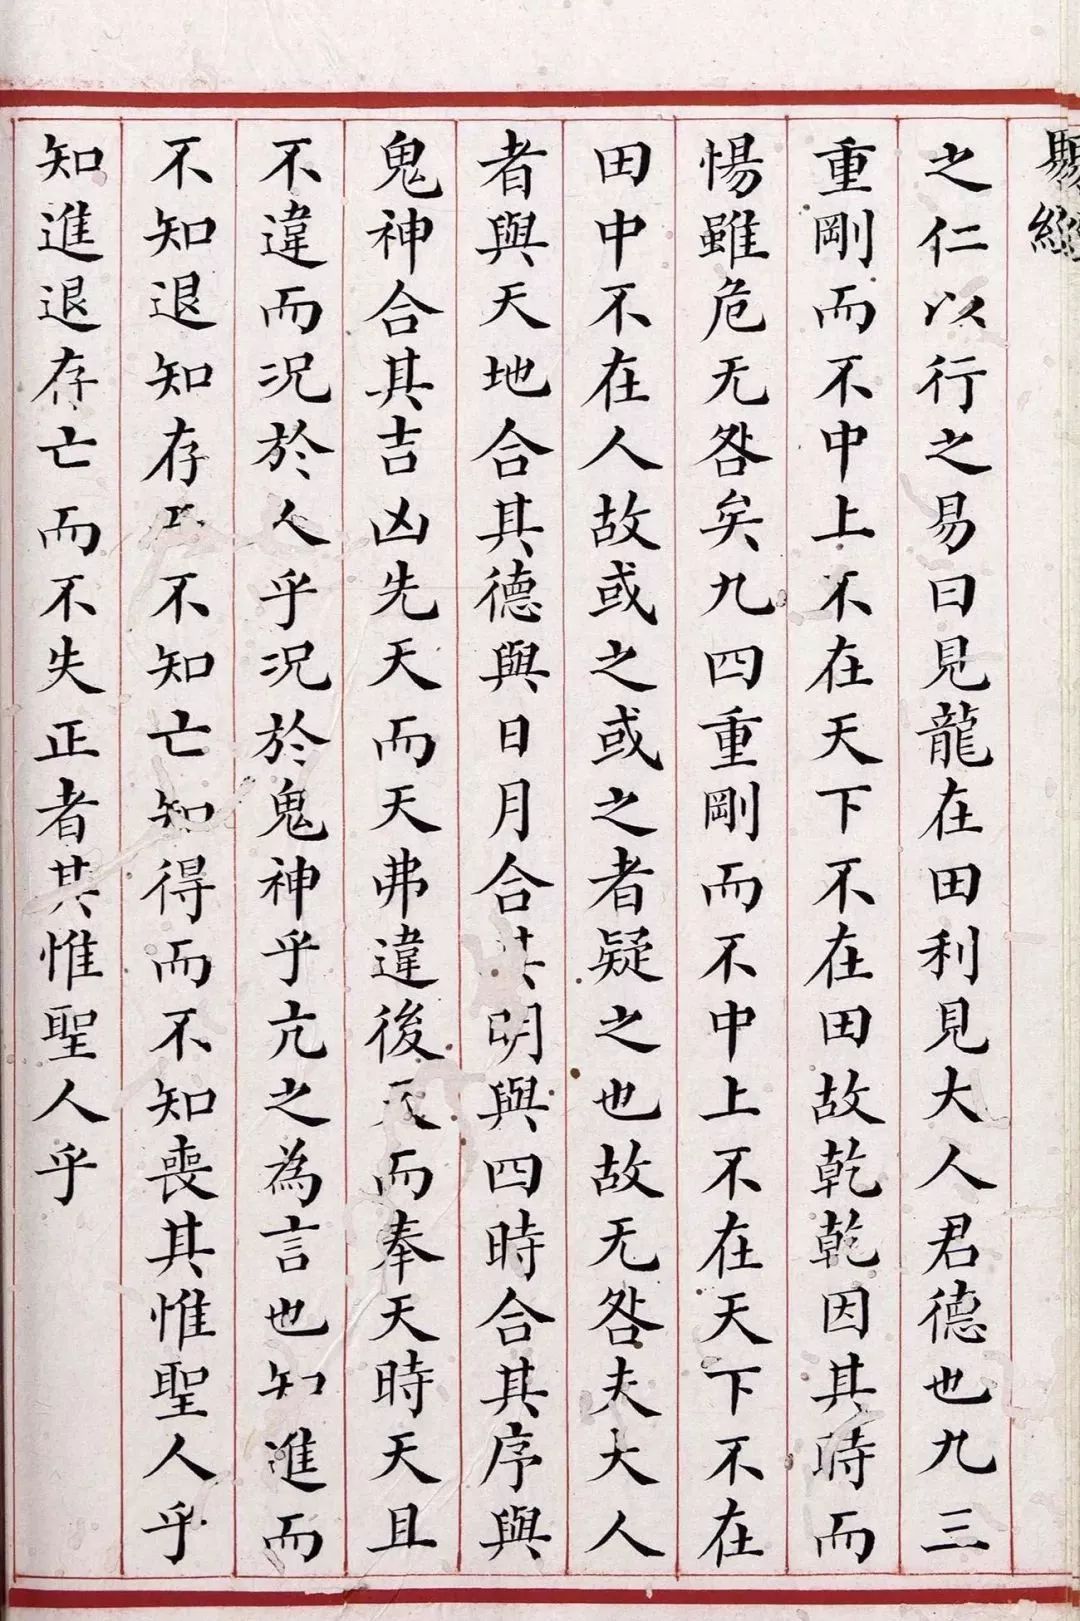 之仁以行之易曰見龍在田利見大人君德也九三
重剛而不中上不在天下不在田故乾乾因其時而
惕雖危无咎矣九四重剛而不中上不在天下不在
田中不在人故或之或之者疑之也故无咎夫大人
者與天地合其德與日月合其明與四時合其序與
鬼神合其吉凶先天而天弗違後天而奉天時天且
不違而況於人乎況於鬼神乎亢之為言也知進而
不知退知存不知亡知得而不知喪其惟聖人乎
知進退存亡而不失正者其惟聖人乎